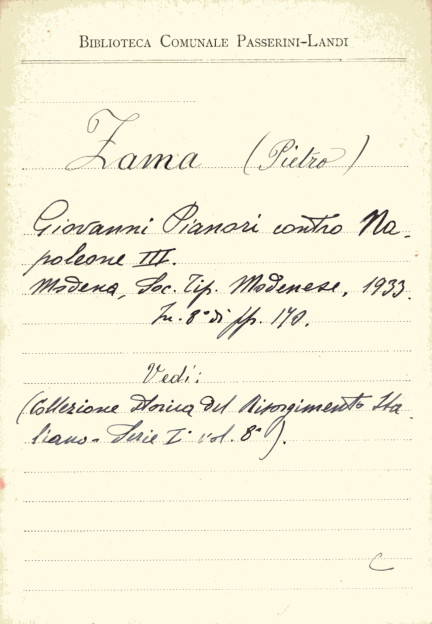 BIBLIOTECA COMUNALE PASSERINI-LANDI
Zama (Pietro)
Giovanni Pianori contro Na-
poleone III.
Modena, Soc. Tip. Modenese, 1933.
In. 8° di pp. 170.
Vedi:
(Collezione Storica del Risorgimento Ita-
liano - Serie I° vol. 8°).
C